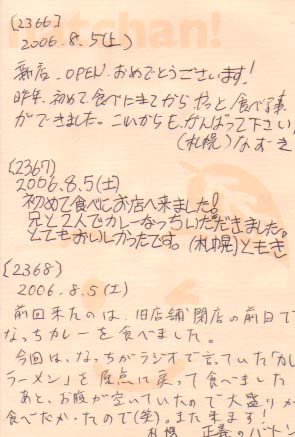 [2366]
2006.8.5(土)
新店.OPEN.おめでとうございます!
昨年、初めて食べにきてからやっと食べる事
ができました。これからもがんばって下さい
(札幌)なずき
[2367]
2006.8.5(土)
初めて食べにお店へ来ました!
兄と2人でカレーなっちいただきました。
とてもおいしかったです。(札幌)ともき
[2368]
2006.8.5(土)
前回来たのは、旧店舗閉店の前日で
なっちカレーを食べました。
今回は、なっちがラジオで言っていた「カレ
ラーメン」を原点に戻って食べました
あと、お腹が空いていたので大盛りか
食べたかったので(笑)。また来ます!
札幌 正義のバトン